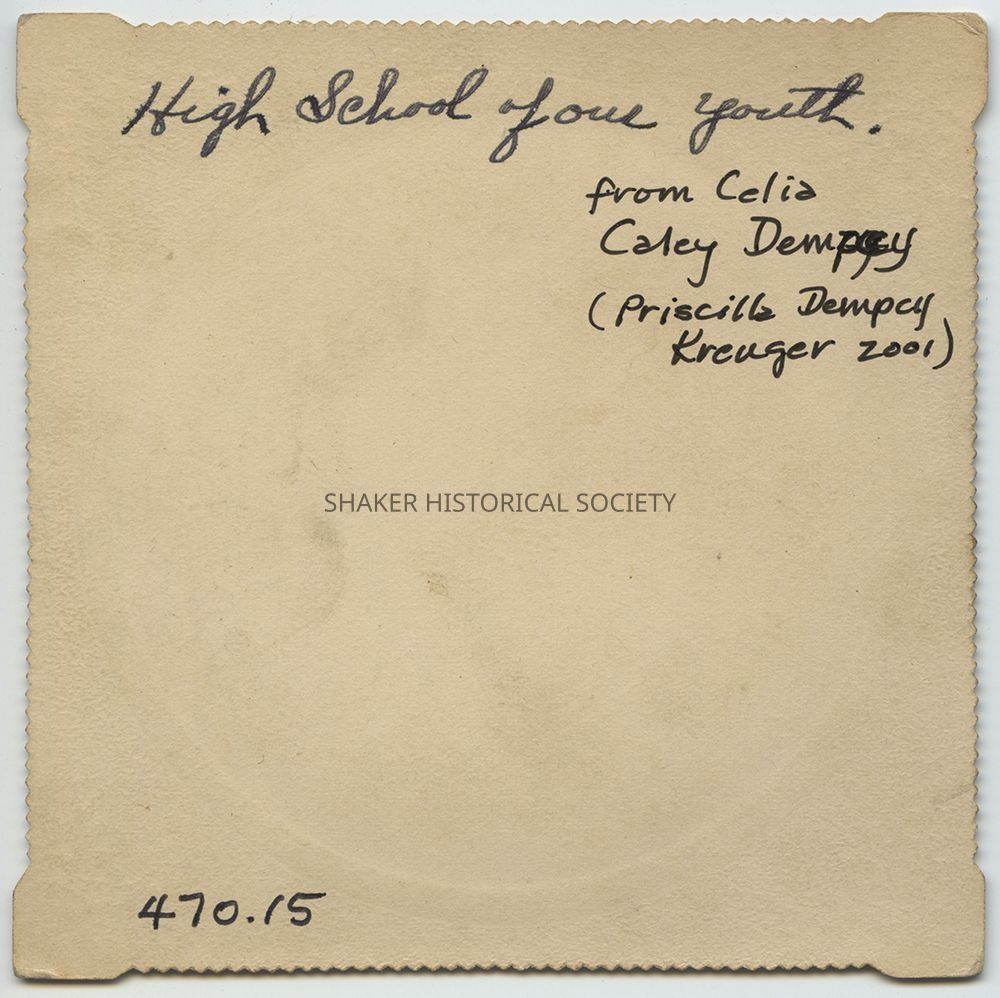 High School of our youth.
from Celia
Caley Dempcy
(Priscilla Dempcy
Kreuger 2001)
SHAKER HISTORICAL SOCIETY
470.15